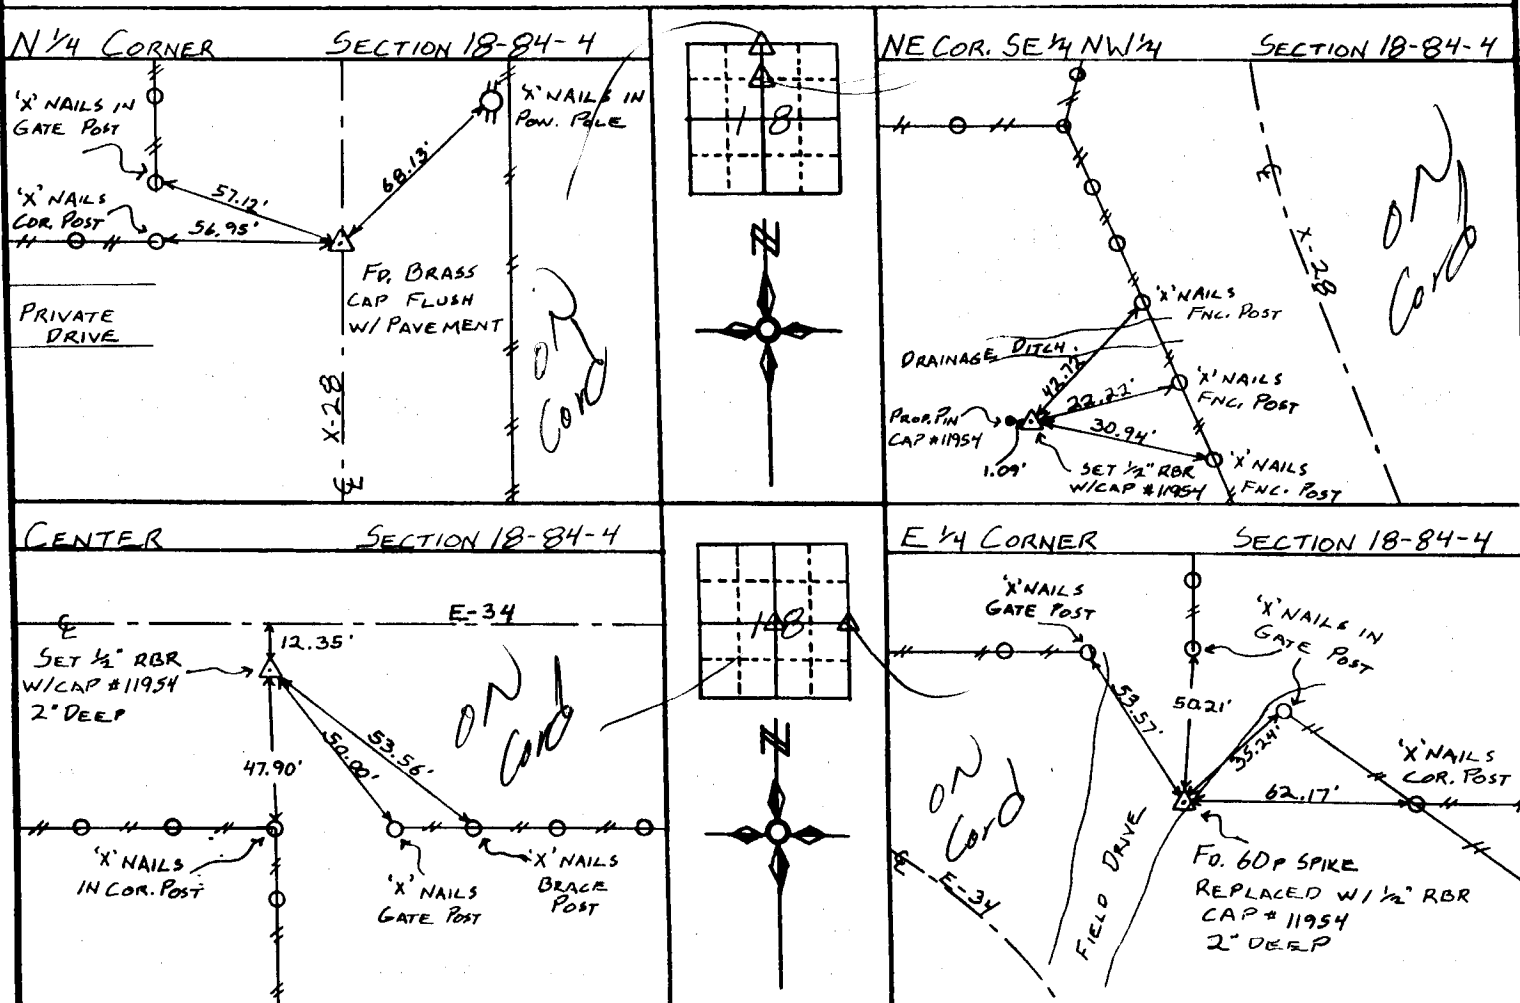 N 1/4 CORNER SECTION 18-84-4
'X' NAILS IN
GATE POST
'X' NAILS IN
POW. POLE
68.13'
57.12'
'X' NAILS
COR. POST
56.95'
FD. BRASS
CAP FLUSH
W/ PAVEMENT
PRIVATE
DRIVE
X-28
℄
ON
Cord
18
N
NE COR. SE 1/4 NW 1/4 SECTION 18-84-4
℄
X-28
ON
Cord
'X' NAILS
FNC. POST
DRAINAGE DITCH
42.72'
'X' NAILS
FNC. POST
22.22'
PROP. PIN
CAP #11954
30.94'
1.09'
SET 1/2" RBR
W/CAP #11954
'X' NAILS
FNC. POST
CENTER SECTION 18-84-4
℄
E-34
12.35'
SET 1/2" RBR
W/CAP #11954
2" DEEP
ON
Cord
53.56'
47.90'
'X' NAILS
IN COR. POST
'X' NAILS
GATE POST
'X' NAILS
BRACE
POST
18
N
E 1/4 CORNER SECTION 18-84-4
'X' NAILS
GATE POST
'X' NAILS IN
GATE POST
53.57'
50.21'
35.24'
'X' NAILS
COR. POST
62.17'
ON
Cord
℄
E-34
FIELD DRIVE
FD. 60P SPIKE
REPLACED W/ 1/2" RBR
CAP # 11954
2" DEEP